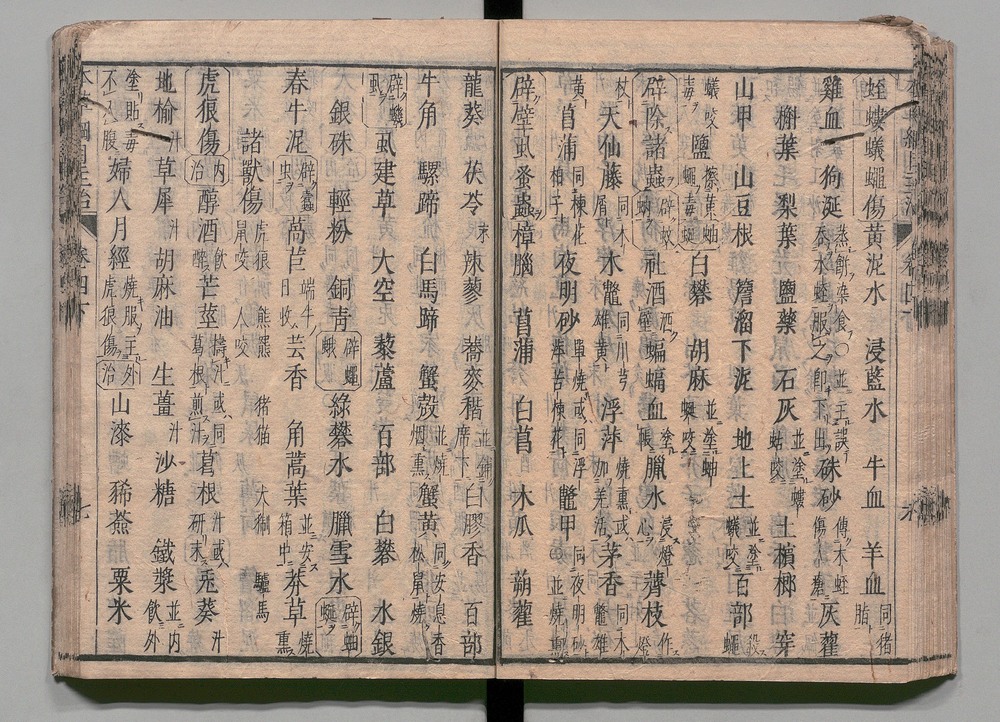 蛭螻蟻蠅傷 黄泥水 浸藍水 牛血 羊血 同猪脂
雞血狗涎 蒸餅染食 呑水蛭服之即下出 並主誤 硃砂 傳木蛭傷瘡 灰藋
槲葉 梨葉 鹽藥 石灰 並塗螻蛄咬 土檳榔 穿
山甲 山豆根 簷溜下泥 地上土 並塗蟻咬 百部 殺蠅
蟻咬毒 鹽 擦黄蠅毒 蚰蜒 白礬 胡麻 並塗蚰蜒咬
辟除諸蟲 辟蚊蚋 社酒 洒壁 蝙蝠血 塗帳 臘水 浸燈心 薺枝 作燈
杖 天仙藤 同木屑 水鼈 同川芎雄黄 浮萍 燒熏或加羌活 茅香 同木鼈雄
黄 菖蒲 同楝花柏子 夜明砂 單燒或同浮萍苦楝花 鼈甲 同夜明砂並燒熏
辟壁虱蚤蟲 樟腦 菖蒲 白菖 木瓜 蒴藋
龍葵 茯苓末 辣蓼 蕎麥稭 並鋪席下 白膠香 百部
牛角 騾蹄 白馬蹄 蟹殼 並燒烟熏 蟹黄 同安息香松鼠燒
辟蟣虱 虱建草 大空 藜蘆 百部 白礬 水銀
銀硃 輕粉 銅青 辟蠅蛾 綠礬水 臘雪水 辟蚰蜒
春牛泥 辟蠹虫 蒿苣 端午日收 芸香 角蒿葉 並安箱中 莽草 燒熏
諸獸傷 虎狼 熊羆 猪猫 犬猘 驢馬 鼠咬 人咬
虎狼傷 内治 醇酒 飲醉 芒莖 擣汁或同葛根煎汁 葛根 汁或研末 兎葵 汁
地榆 汁 草犀 汁 胡麻油 生薑 汁 沙糖 鐵漿 並内飲外
塗助毒不入腹 婦人月經 燒服主虎狼傷 外治 山漆 豨薟 粟米
卷四下 七